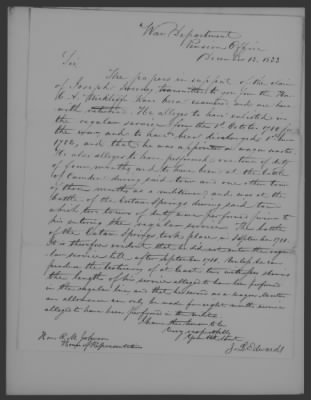 War Department
Pension Office
December 13, 1833
Sir
The papers in support of the claim
of Joseph transmitted to you from the Hon
have been examined and are here
with He alleges to have enlisted in
the regular service from the 1st October 1780 for
the war, and to have been discharged 1st June
1782, and that he was appointed a wagon master
He also alleges to have performed one tour of duty
of four months, and to have been at the battle
of Camden during said tour and one other tour
of three months as a militiaman, and was at the
battle of the Eutaw Springs during said tour
which two tours of duty were performed prior to
his entering the regular service. The battle
of the Eutaw Springs took place in September 1781.
It is therefore evident that he did not enter the regu
lar service till after September 1781. He
the testimony of at least two witnesses
the length of his service alleged to have been performed
in the regular line and that he served as a wagon master
an allowance can only be made for eight months service
alleged to have been performed in the militia.
I have the honor to be
Very respectfully
Your Obt Servt
J. L. Edwards
Hon. R. M. Johnson
House of Representatives